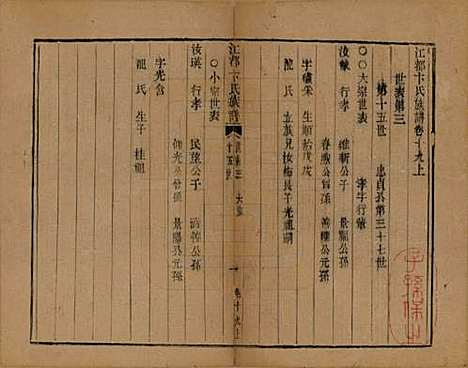 江都卞氏族譜卷十九上
世表第三
第十五世 忠貞公第三十七世
○○大宗世表 孝字行輩
汝 行孝 維新公子 景 公元孫
春 公曾孫 公孫
字 生順治戊戌
龍氏 立族兄汝梅長子光祖嗣
江都卞氏族譜
世表三 大宗
十五世
一
卷十九上
○小宗世表
汝瑛 行孝 民 公子 公孫
公曾孫 景 公元孫
字光含
龍氏 生子 桂
子孫保之